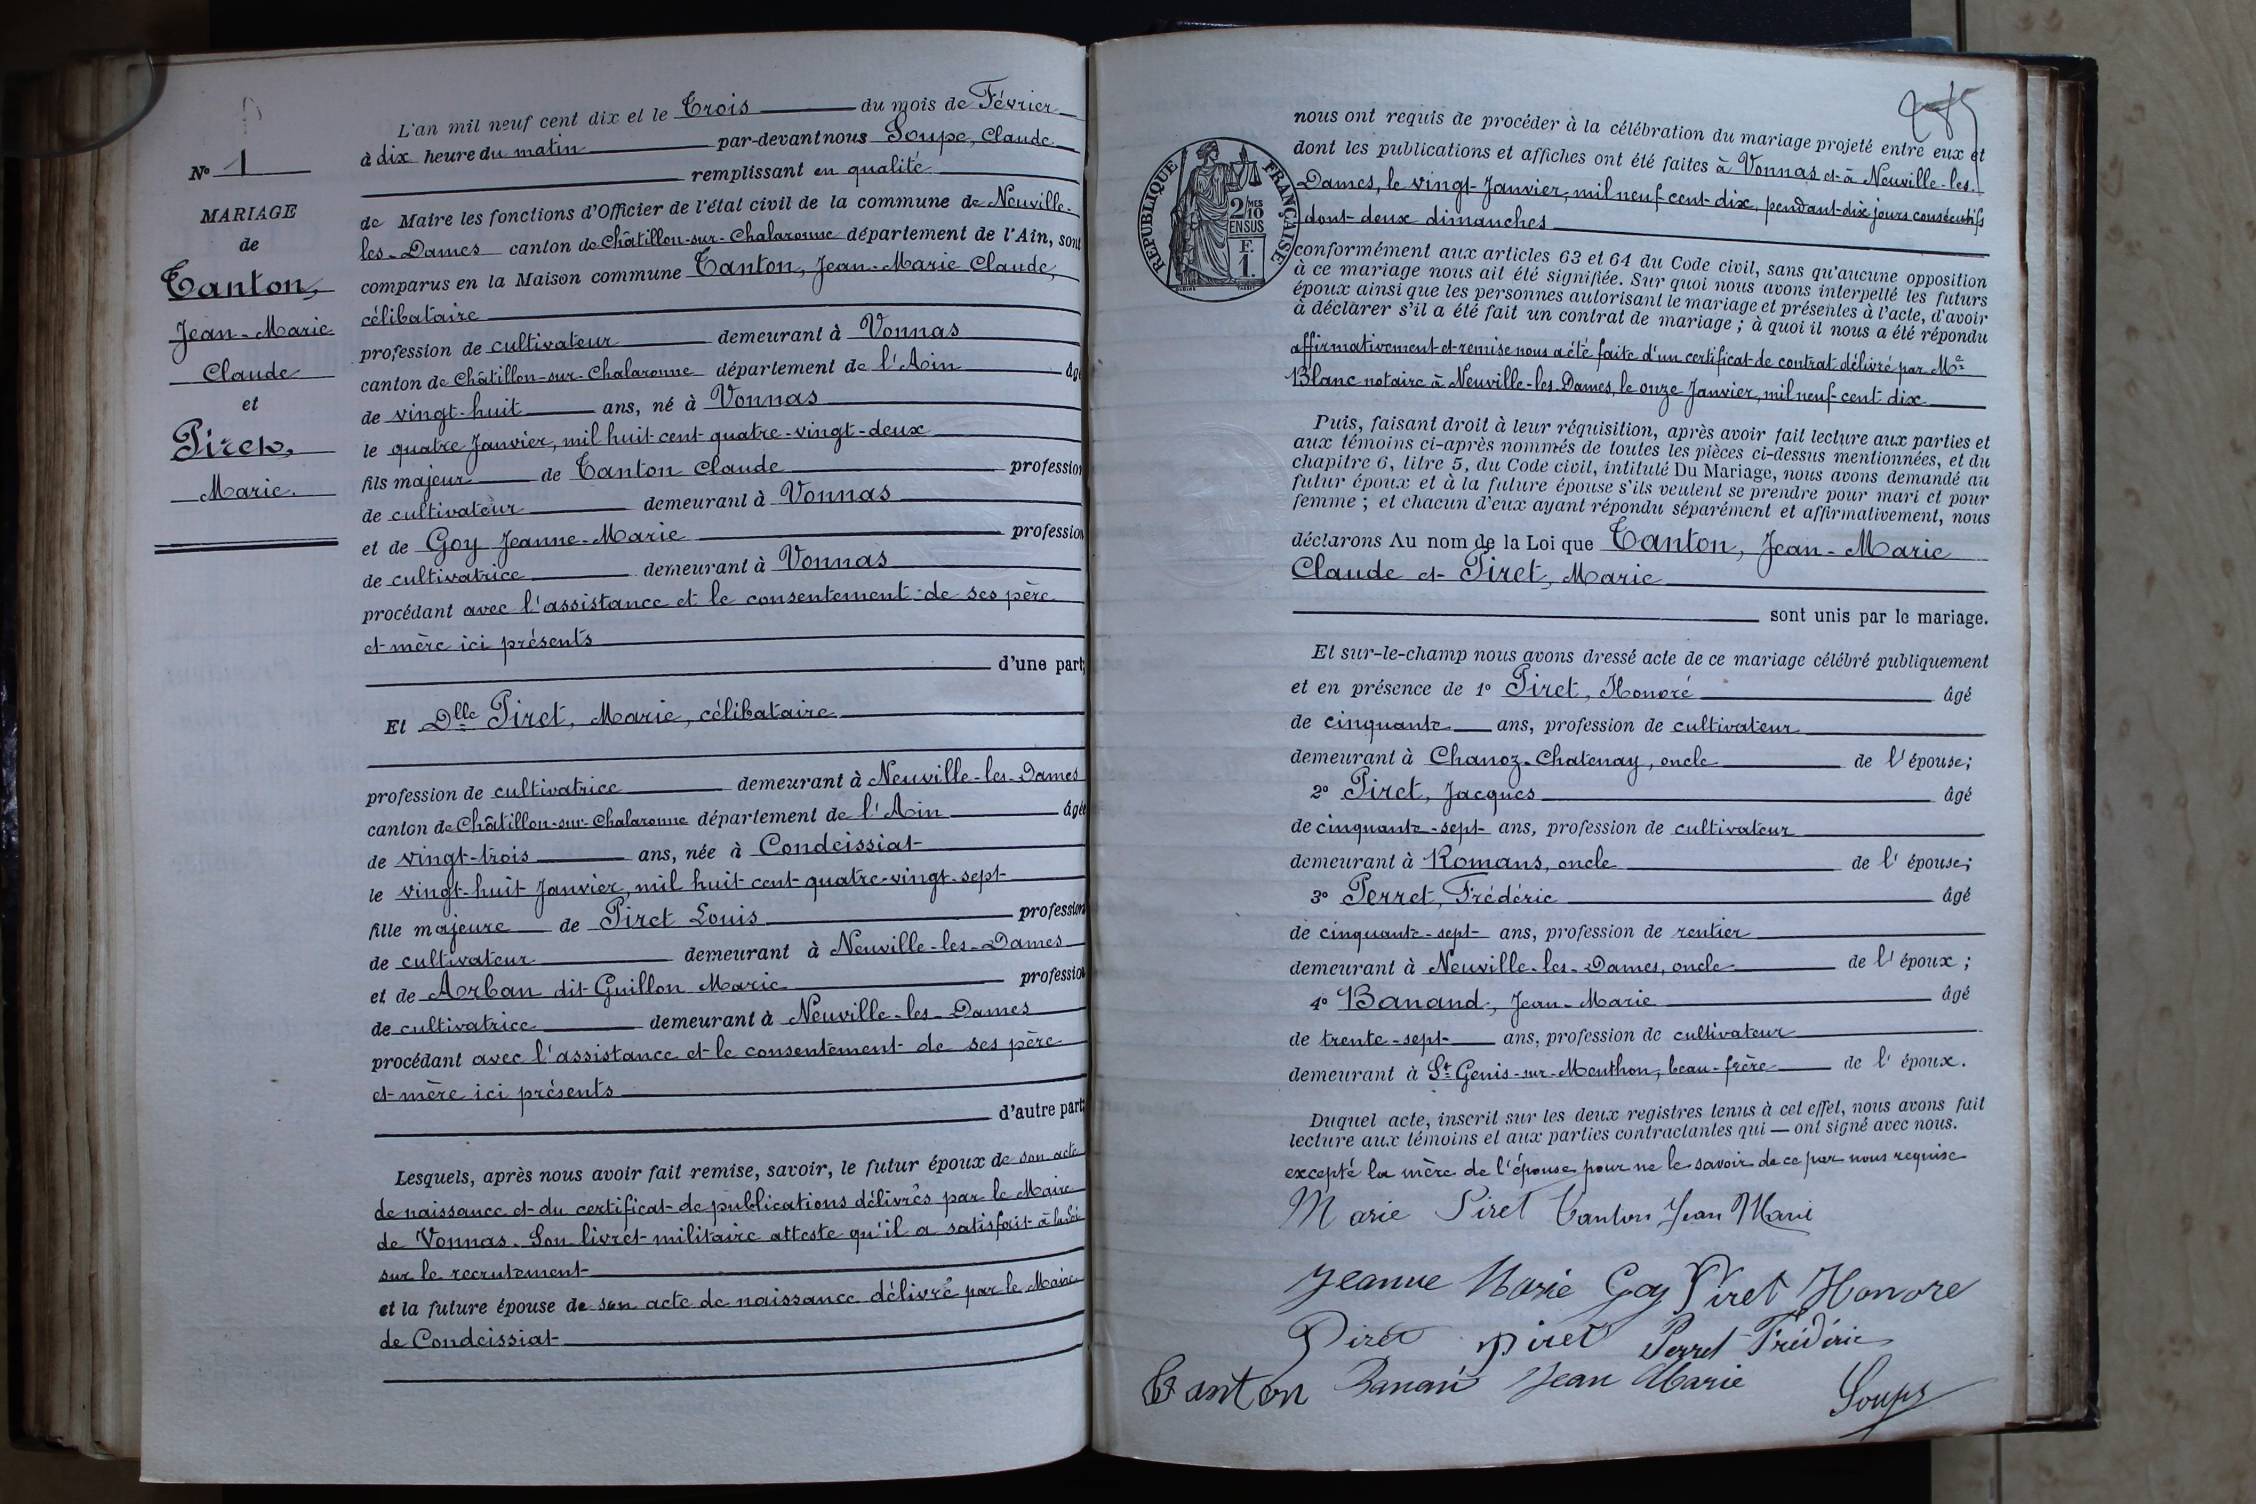 N° 1
MARIAGE
de
Tanton,
Jean-Marie
Claude
et
Piret,
Marie.
L'an mil neuf cent dix et le Trois du mois de Février
à dix heure du matin par-devant nous Soupe, Claude
remplissant en qualité
de Maire les fonctions d'Officier de l'état civil de la commune de Neuville-
les-Dames canton de Châtillon-sur-Chalaronne département de l'Ain, sont
comparus en la Maison commune Tanton, Jean-Marie Claude,
célibataire
profession de cultivateur demeurant à Vonnas
canton de Châtillon-sur-Chalaronne département de l'Ain âgé
de vingt-huit ans, né à Vonnas
le quatre Janvier, mil huit cent quatre-vingt-deux
fils majeur de Tanton Claude profession
de cultivateur demeurant à Vonnas
et de Goy Jeanne-Marie profession
de cultivatrice demeurant à Vonnas
procédant avec l'assistance et le consentement de ses père
et mère ici présents
d'une part;
Et Dlle Piret, Marie, célibataire
profession de cultivatrice demeurant à Neuville-les-Dames
canton de Châtillon-sur-Chalaronne département de l'Ain âgée
de vingt-trois ans, née à Condeissiat
le vingt-huit Janvier, mil huit cent quatre-vingt-sept
fille majeure de Piret Louis profession
de cultivateur demeurant à Neuville-les-Dames
et de Arban dit Guillon Marie profession
de cultivatrice demeurant à Neuville-les-Dames
procédant avec l'assistance et le consentement de ses père
et mère ici présents
d'autre part;
Lesquels, après nous avoir fait remise, savoir, le futur époux de son acte
de naissance et du certificat de publications délivrés par le Maire
de Vonnas. Son livret militaire atteste qu'il a satisfait à la loi
sur le recrutement
et la future épouse de son acte de naissance délivré par le Maire
de Condeissiat
RÉPUBLIQUE FRANÇAISE
2/MES
10
EN SUS
F.
1.
nous ont requis de procéder à la célébration du mariage projeté entre eux et
dont les publications et affiches ont été faites à Vonnas et à Neuville-les-
Dames, le vingt Janvier, mil neuf cent dix, pendant dix jours consécutifs
dont deux dimanches
conformément aux articles 63 et 64 du Code civil, sans qu'aucune opposition
à ce mariage nous ait été signifiée. Sur quoi nous avons interpellé les futurs
époux ainsi que les personnes autorisant le mariage et présentes à l'acte, d'avoir
à déclarer s'il a été fait un contrat de mariage ; à quoi il nous a été répondu
affirmativement et remise nous a été faite d'un certificat de contrat délivré par Me
Blanc notaire à Neuville-les-Dames, le onze Janvier, mil neuf cent dix
Puis, faisant droit à leur réquisition, après avoir fait lecture aux parties et
aux témoins ci-après nommés de toutes les pièces ci-dessus mentionnées, et du
chapitre 6, titre 5, du Code civil, intitulé Du Mariage, nous avons demandé au
futur époux et à la future épouse s'ils veulent se prendre pour mari et pour
femme ; et chacun d'eux ayant répondu séparément et affirmativement, nous
déclarons Au nom de la Loi que Tanton, Jean-Marie
Claude et Piret, Marie
sont unis par le mariage.
Et sur-le-champ nous avons dressé acte de ce mariage célébré publiquement
et en présence de 1° Piret, Honoré âgé
de cinquante ans, profession de cultivateur
demeurant à Chanoz-Chatenay, oncle de l'épouse;
2° Piret, Jacques âgé
de cinquante-sept ans, profession de cultivateur
demeurant à Romans, oncle de l'épouse;
3° Perret, Frédéric âgé
de cinquante-sept ans, profession de rentier
demeurant à Neuville-les-Dames, oncle de l'époux ;
4° Banand, Jean-Marie âgé
de trente-sept ans, profession de cultivateur
demeurant à St Genis-sur-Menthon, beau-frère de l'époux.
Duquel acte, inscrit sur les deux registres tenus à cet effet, nous avons fait
lecture aux témoins et aux parties contractantes qui — ont signé avec nous.
excepté la mère de l'épouse pour ne le savoir de ce par nous requise
Marie Piret Tanton Jean Marie
Jeanne Marie Goy Piret Honore
Piret Piret Perret Frédéric
Tanton Banand Jean Marie Soupe